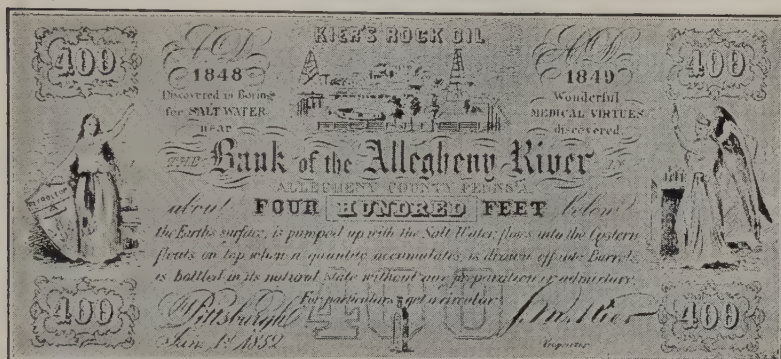 KIER'S ROCK OIL
400 A.D. A.D. 400
1848 1849
Discovered in Boring Wonderful
for SALT WATER MEDICAL VIRTUES
near discovered
THE Bank of the Allegheny River IN
ALLEGHENY COUNTY PENNS'A.
about FOUR HUNDRED FEET below
the Earth's surface, is pumped up with the Salt Water, flows into the Cistern
floats on top, when a quantity accumulates, is drawn off into Barrels,
is bottled in its natural state without any preparation or admixture.
For particulars get a circular
400 Pittsburgh 400 400
Jany. 1st 1852. Proprietor